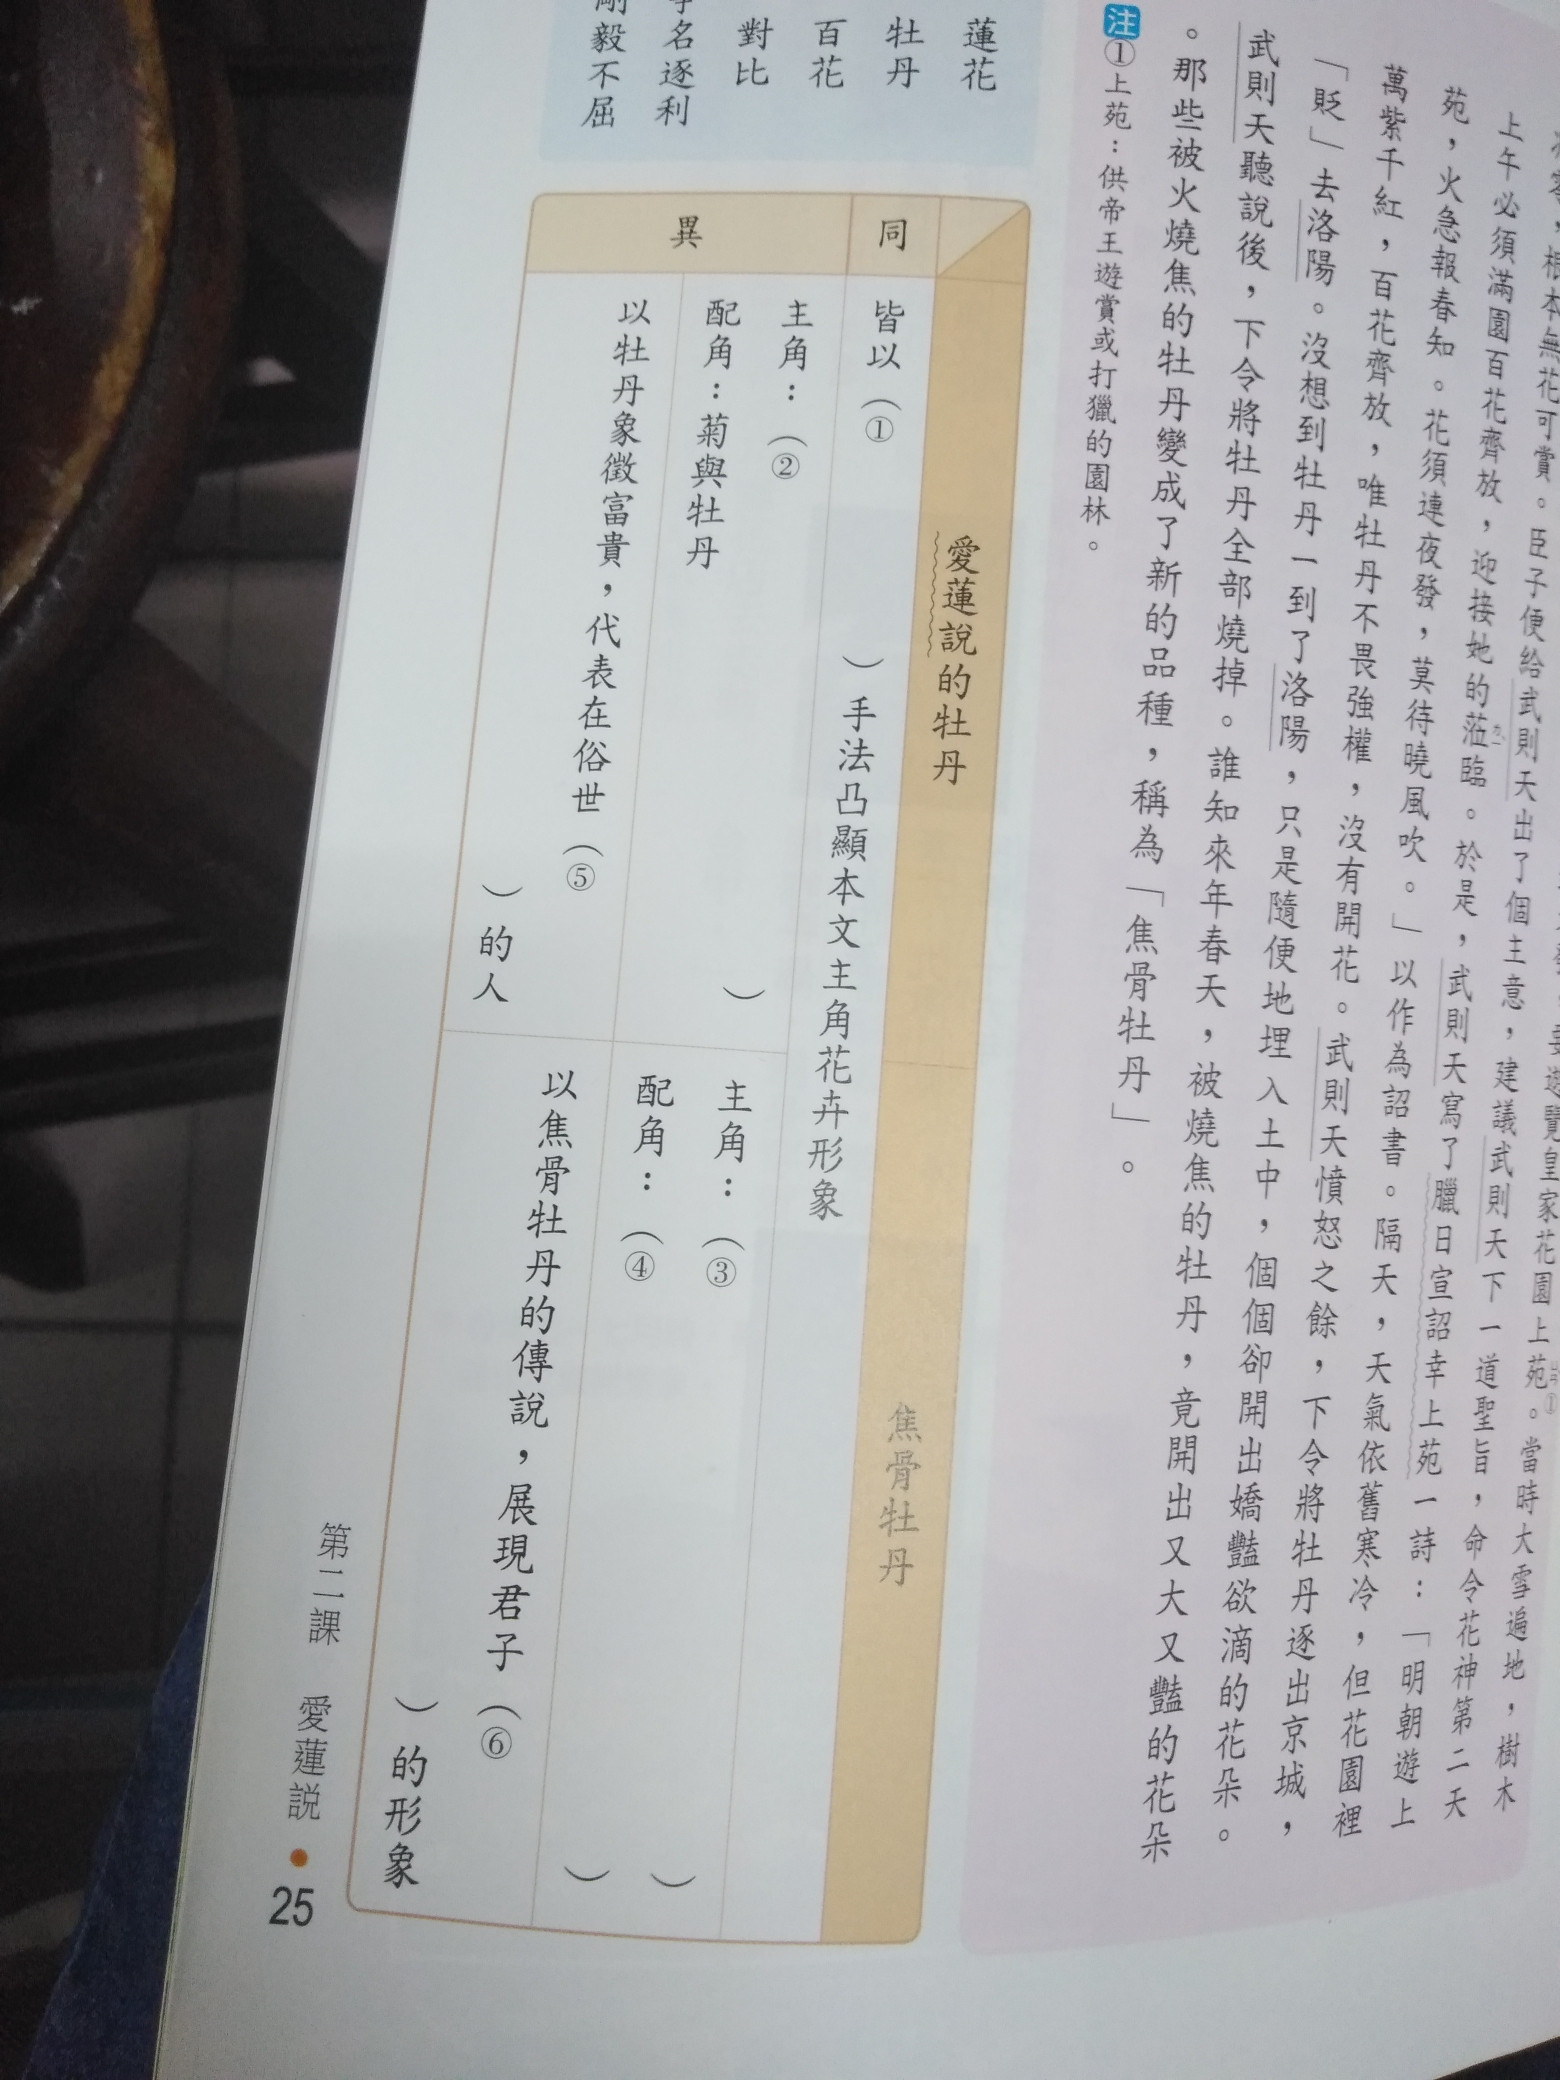 上午必須滿園百花齊放，迎接她的蒞臨。於是，武則天寫了臘日宣詔幸上苑一詩：「明朝遊上
苑，火急報春知。花須連夜發，莫待曉風吹。」以作為詔書。隔天，天氣依舊寒冷，但花園裡
萬紫千紅，百花齊放，唯牡丹不畏強權，沒有開花。武則天憤怒之餘，下令將牡丹逐出京城，
「貶」去洛陽。沒想到牡丹一到了洛陽，只是隨便地埋入土中，個個卻開出嬌豔欲滴的花朵。
武則天聽說後，下令將牡丹全部燒掉。誰知來年春天，被燒焦的牡丹，竟開出又大又豔的花朵
。那些被火燒焦的牡丹變成了新的品種，稱為「焦骨牡丹」。
注①上苑：供帝王遊賞或打獵的園林。
蓮花
牡丹
百花
對比
名逐利
剛毅不屈
愛蓮說的牡丹
焦骨牡丹
同
皆以（①　）手法凸顯本文主角花卉形象
異
主角：（②　）
配角：菊與牡丹
主角：（③　）
配角：（④　）
以牡丹象徵富貴，代表在俗世（⑤
　）的人
以焦骨牡丹的傳說，展現君子（⑥
　）的形象
第二課　愛蓮說 • 25